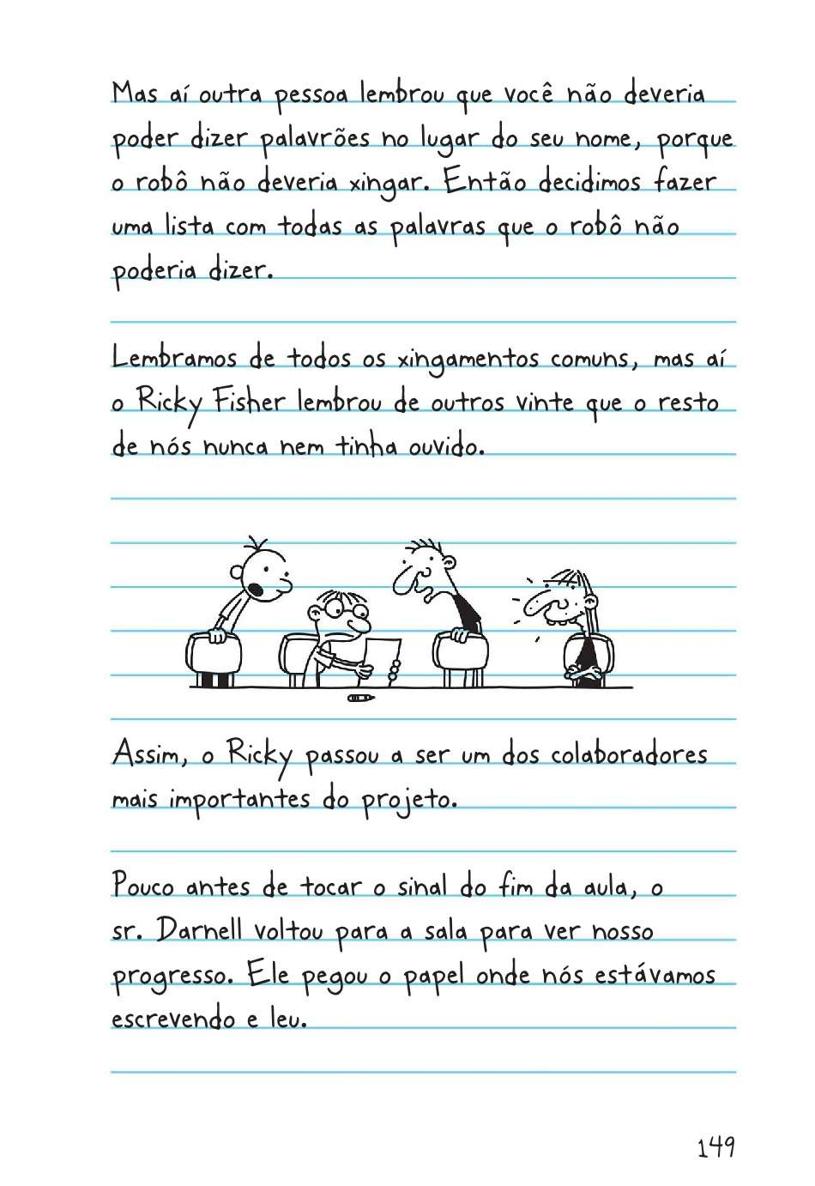 Mas aí outra pessoa lembrou que você não deveria
poder dizer palavrões no lugar do seu nome, porque
o robô não deveria xingar. Então decidimos fazer
uma lista com todas as palavras que o robô não
poderia dizer.
Lembramos de todos os xingamentos comuns, mas aí
o Ricky Fisher lembrou de outros vinte que o resto
de nós nunca nem tinha ouvido.
Assim, o Ricky passou a ser um dos colaboradores
mais importantes do projeto.
Pouco antes de tocar o sinal do fim da aula, o
sr. Darnell voltou para a sala para ver nosso
progresso. Ele pegou o papel onde nós estávamos
escrevendo e leu.
149